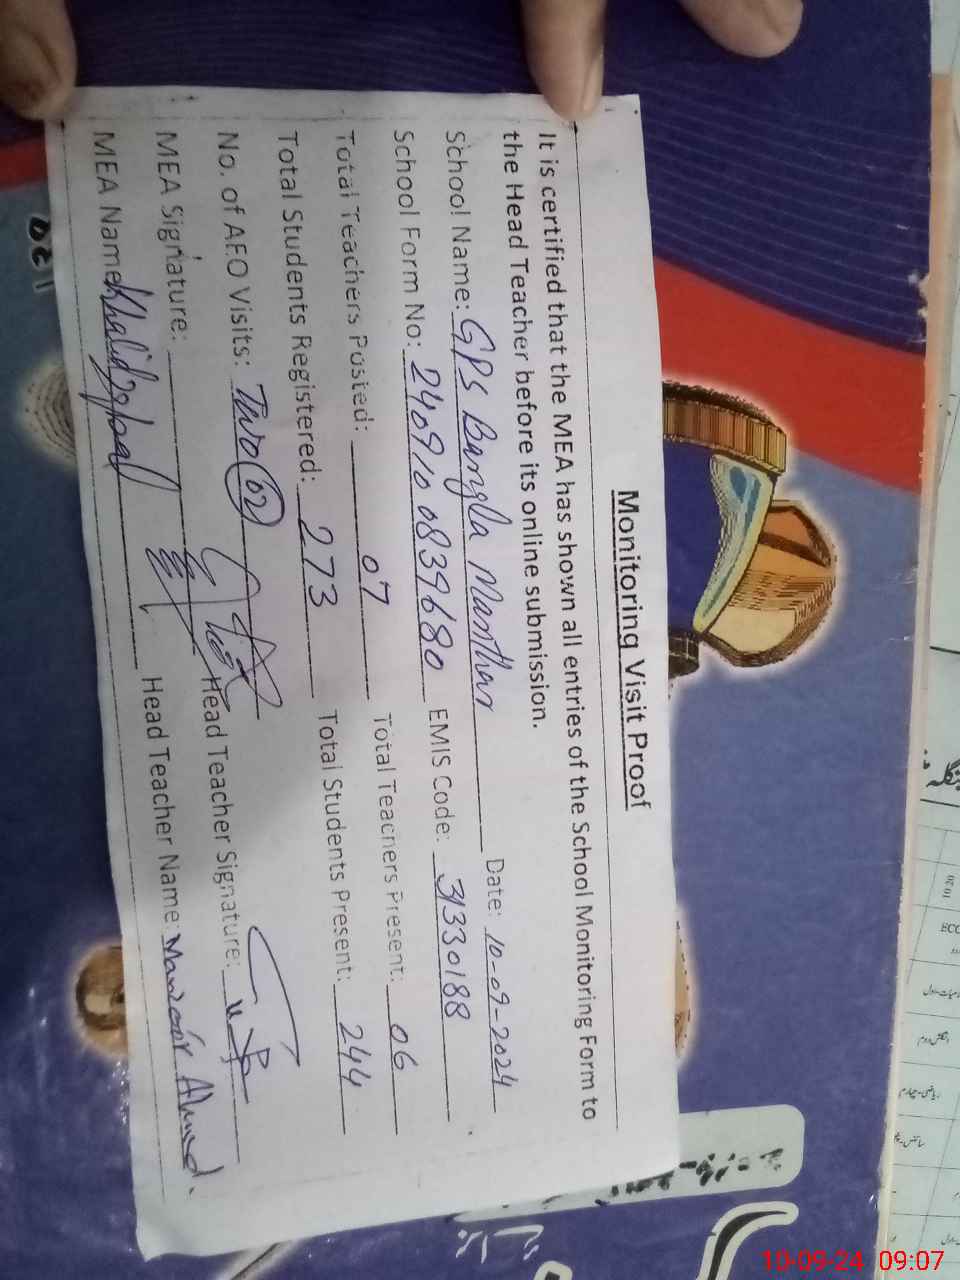 Monitoring Visit Proof
It is certified that the MEA has shown all entries of the School Monitoring Form to
the Head Teacher before its online submission.
School Name: GPS Bangla Manthar Date: 10-09-2024
School Form No: 240910 0839680 EMIS Code: 31330188
Total Teachers Posted: 07 Total Teachers Present: 06
Total Students Registered: 273 Total Students Present: 244
No. of AEO Visits: Two (02)
MEA Signature: Head Teacher Signature:
MEA Name: Khalid Iqbal Head Teacher Name: Manzoor Ahmed.
10-09-24 09:07